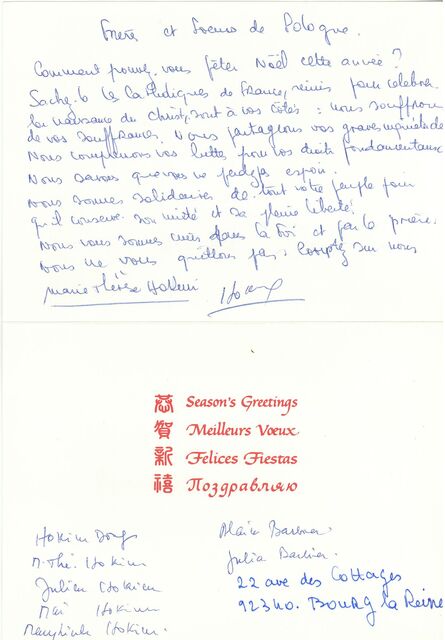 Frères et Soeurs de Pologne.
Comment pouvez-vous fêter Noël cette année ?
Sachez-le les Catholiques de France, réunis pour célébrer
la naissance du Christ, sont à vos côtés : nous souffrons
de vos souffrances. Nous partageons vos graves inquiétudes
Nous comprenons vos luttes pour vos droits fondamentaux
Nous savons que vous ne perdez pas espoir.
nous sommes solidaires de tout votre peuple pour
qu'il conserve son unité et sa pleine liberté.
Nous vous sommes unis dans la foi et par la prière.
Nous ne vous quittons pas, comptez sur nous
Marie Thérèse Hokim
恭 Season's Greetings
賀 Meilleurs Vœux
新 Felices Fiestas
禧 Поздравляю
Hokim
M. Thé. Hokim
Julien Hokim
Mai Hokim
Hokim.
Alain Barbier
Julia Barbier.
22 ave des Cottages
92340. BOURG la Reine